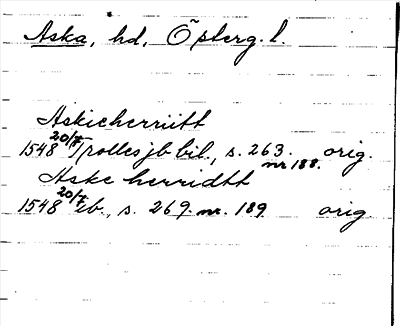 Aska, hd, Östberg. l.
Askieherriitt
1548 20/7 Trolles jb bil., s. 263. nr 188. orig.
Aske herridtt
1548 20/7 ib., s. 269. nr. 189 orig